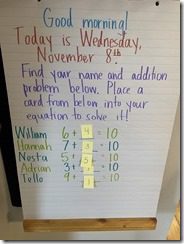 Good morning!
Today is Wednesday,
November 8th
Find your name and addition
problem below. Place a
card from below into your
equation to solve it!
William 6 + 4 = 10
Hannah 7 + 3 = 10
Nosta 5 + 5 = 10
Adrian 3 + = 10
Tello 9 + 1 = 10